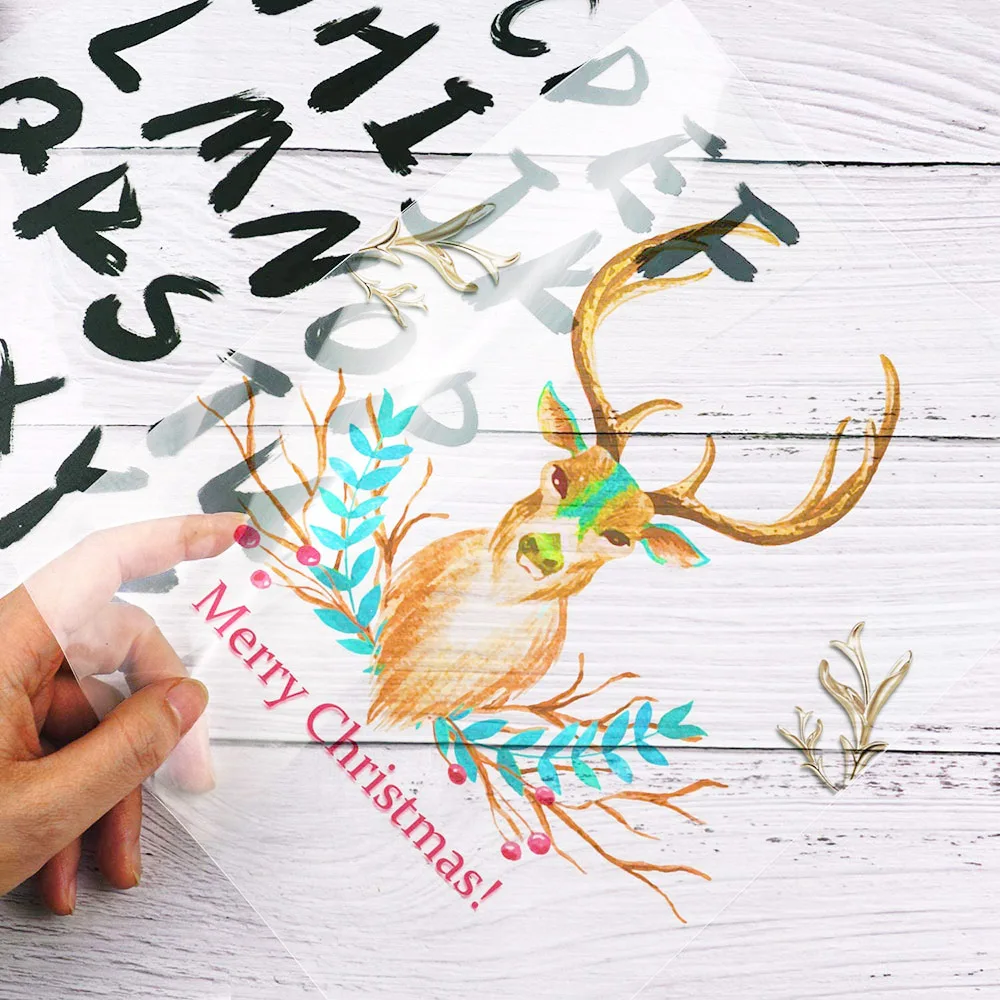 C D E F
H I J K
L M N O P
Q R S T
X Y
Merry Christmas!